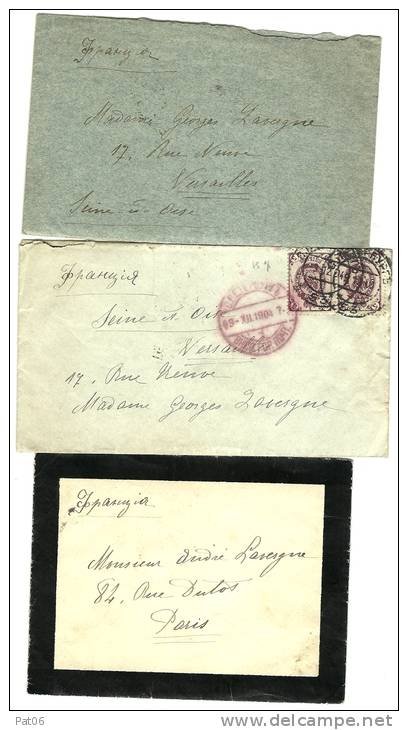 Франція
Madame Georges Lavergne
17, Rue Neuve
Versailles
Seine-et-Oise
Франція
Seine et Oise
Versailles
17, Rue Neuve
Madame Georges Lavergne
9-XII.1904
Франція
Monsieur André Lavergne
84, Rue Dutot
Paris
Pat06
www.delcampe.net